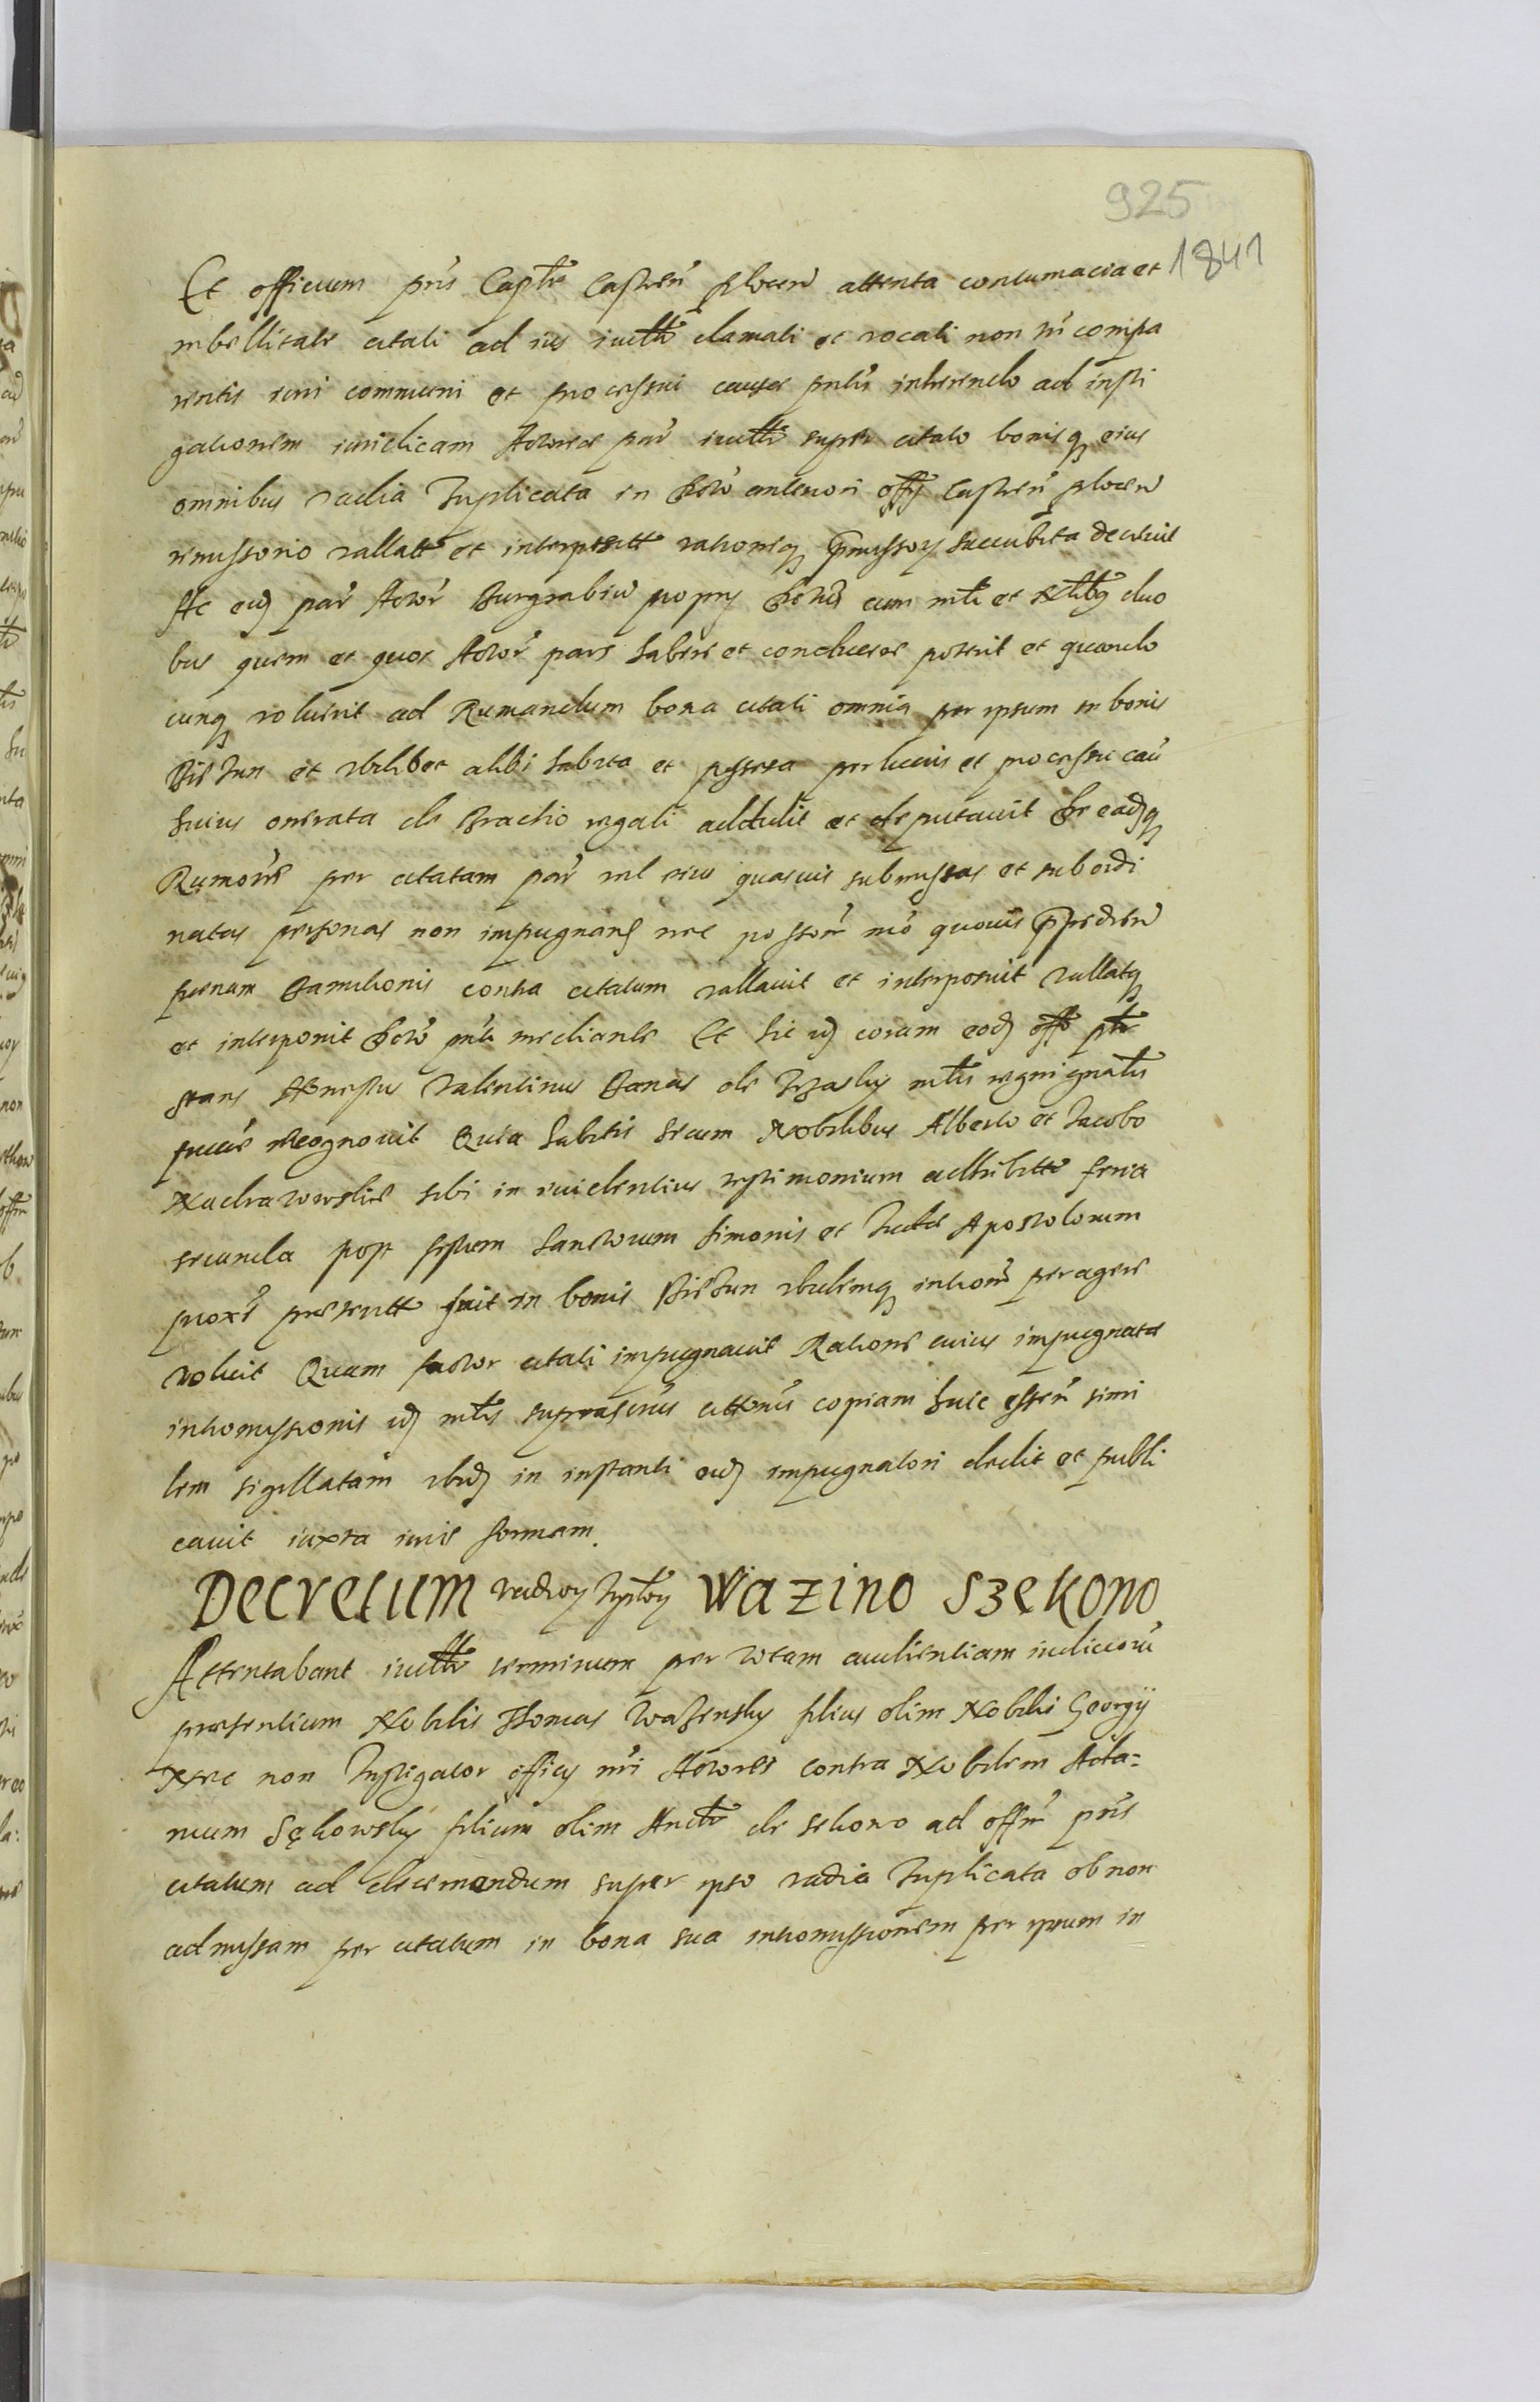 925
1841
Et officium pñs Captle Castreñ plocen attenta contumacia et
rebellitate citati ad ius iudltr clamati et vocati non tñ compa
rentis iuri communi et processui causae pntis inherendo ad insti
gationem iuridicam Actorea par iudltr super citato bonisq eius
omnibus vadia Triplicata in Decro anteriori offi Castreñ plocen
remissorio vallatt et interpositt rationeq pmissorq succubita decrevit
Ac eid par Actor Burgrabiu proprij cum mtli et Nlibq duo
bus quem et quos Actor pars habere et conducere poterit et quando
cunq voluerit ad Rumandum bona citati omnia per ipsum in bonis
et ubilibet alibi habita et possessa perlucris et processu cau
huius onerata de Brachio regali addidit et deputavit De eadq
Rumoñe per citatam par vel eius quasvis submissas et subordi
natas personas non impugnand nec possoñ mo quovis ppedien
poenam Bannitionis contra citatum vallavit et interposuit vallatq
et interponit Decro pnti mediante Et hic id coram eod offo ptr
stans Honestus Valentinus Banas de mtlis regni gnalis
recognovit Quia habitis secum Nobilibus Alberto et Jacobo
sibi in evidentius testimonium adhibitt feria
secunda post festum Sanctorum Simonis et Judae Apostolorum
proxe preteritt fuit in bonis ibidemq intromi peragere
voluit Quam factor citati impugnavit Ratione cuius impugnatae
intromissionis id mtlis suprascrus cittonis copiam huic esseñ simi
lem sigillatam ibid in instanti eid impugnatori dedit et publi
cavit iuxta iuris formam.
Decretum vadiorq Triptorq Wazino Szekono
Attentabant iudltr terminum per totam audientiam iudiciorũ
praesentium Nobilis Thomas Wazensky filius olim Nobilis Georgij
Nec non Instigator officij nri Actores contra Nobilem Ada=
mum Sękowsky filium olim de Sekono ad offm pñs
citatum ad decernendum super ipso vadia Triplicata ob non
admissam per citatum in bona sua intromissionem per ipsum in